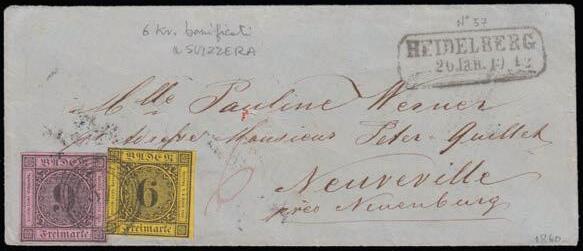 Nº 57
6 Kr. bonificati
SVIZZERA
HEIDELBERG
26 Jan.
Mlle Pauline Werner
Monsieur Peter-Quillet
Neuveville
près Neuenburg
BADEN
9
Freimarke
BADEN
6
Freimarke
1860